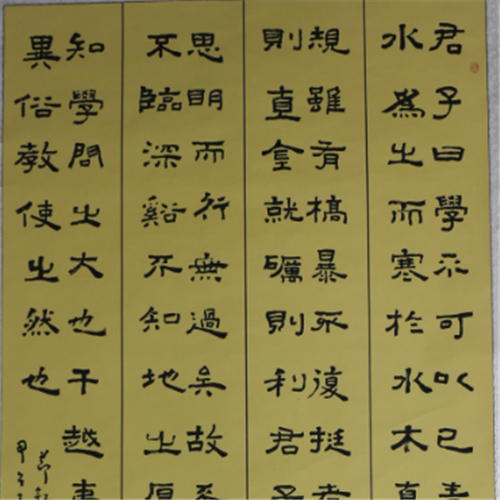 君子曰學不可以已青
水為之而寒於水木直
規雖有槁暴不復挺者
則直金就礪則利君子
思明而行無過矣故
不臨深谿不知地之厚
知學問之大也干越夷
異俗教使之然也